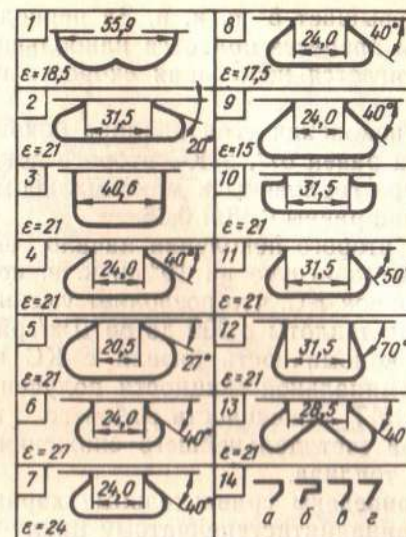 1
55,9
ε=18,5
2
31,5
20°
ε=21
3
40,6
ε=21
4
40°
24,0
ε=21
5
20,5
27°
ε=21
6
24,0
40°
ε=27
7
24,0
40
ε=24
8
40°
24,0
ε=17,5
9
40°
24,0
ε=15
10
31,5
ε=21
11
31,5
50°
ε=21
12
31,5
70°
ε=21
13
28,5
40
ε=21
14
а б в г